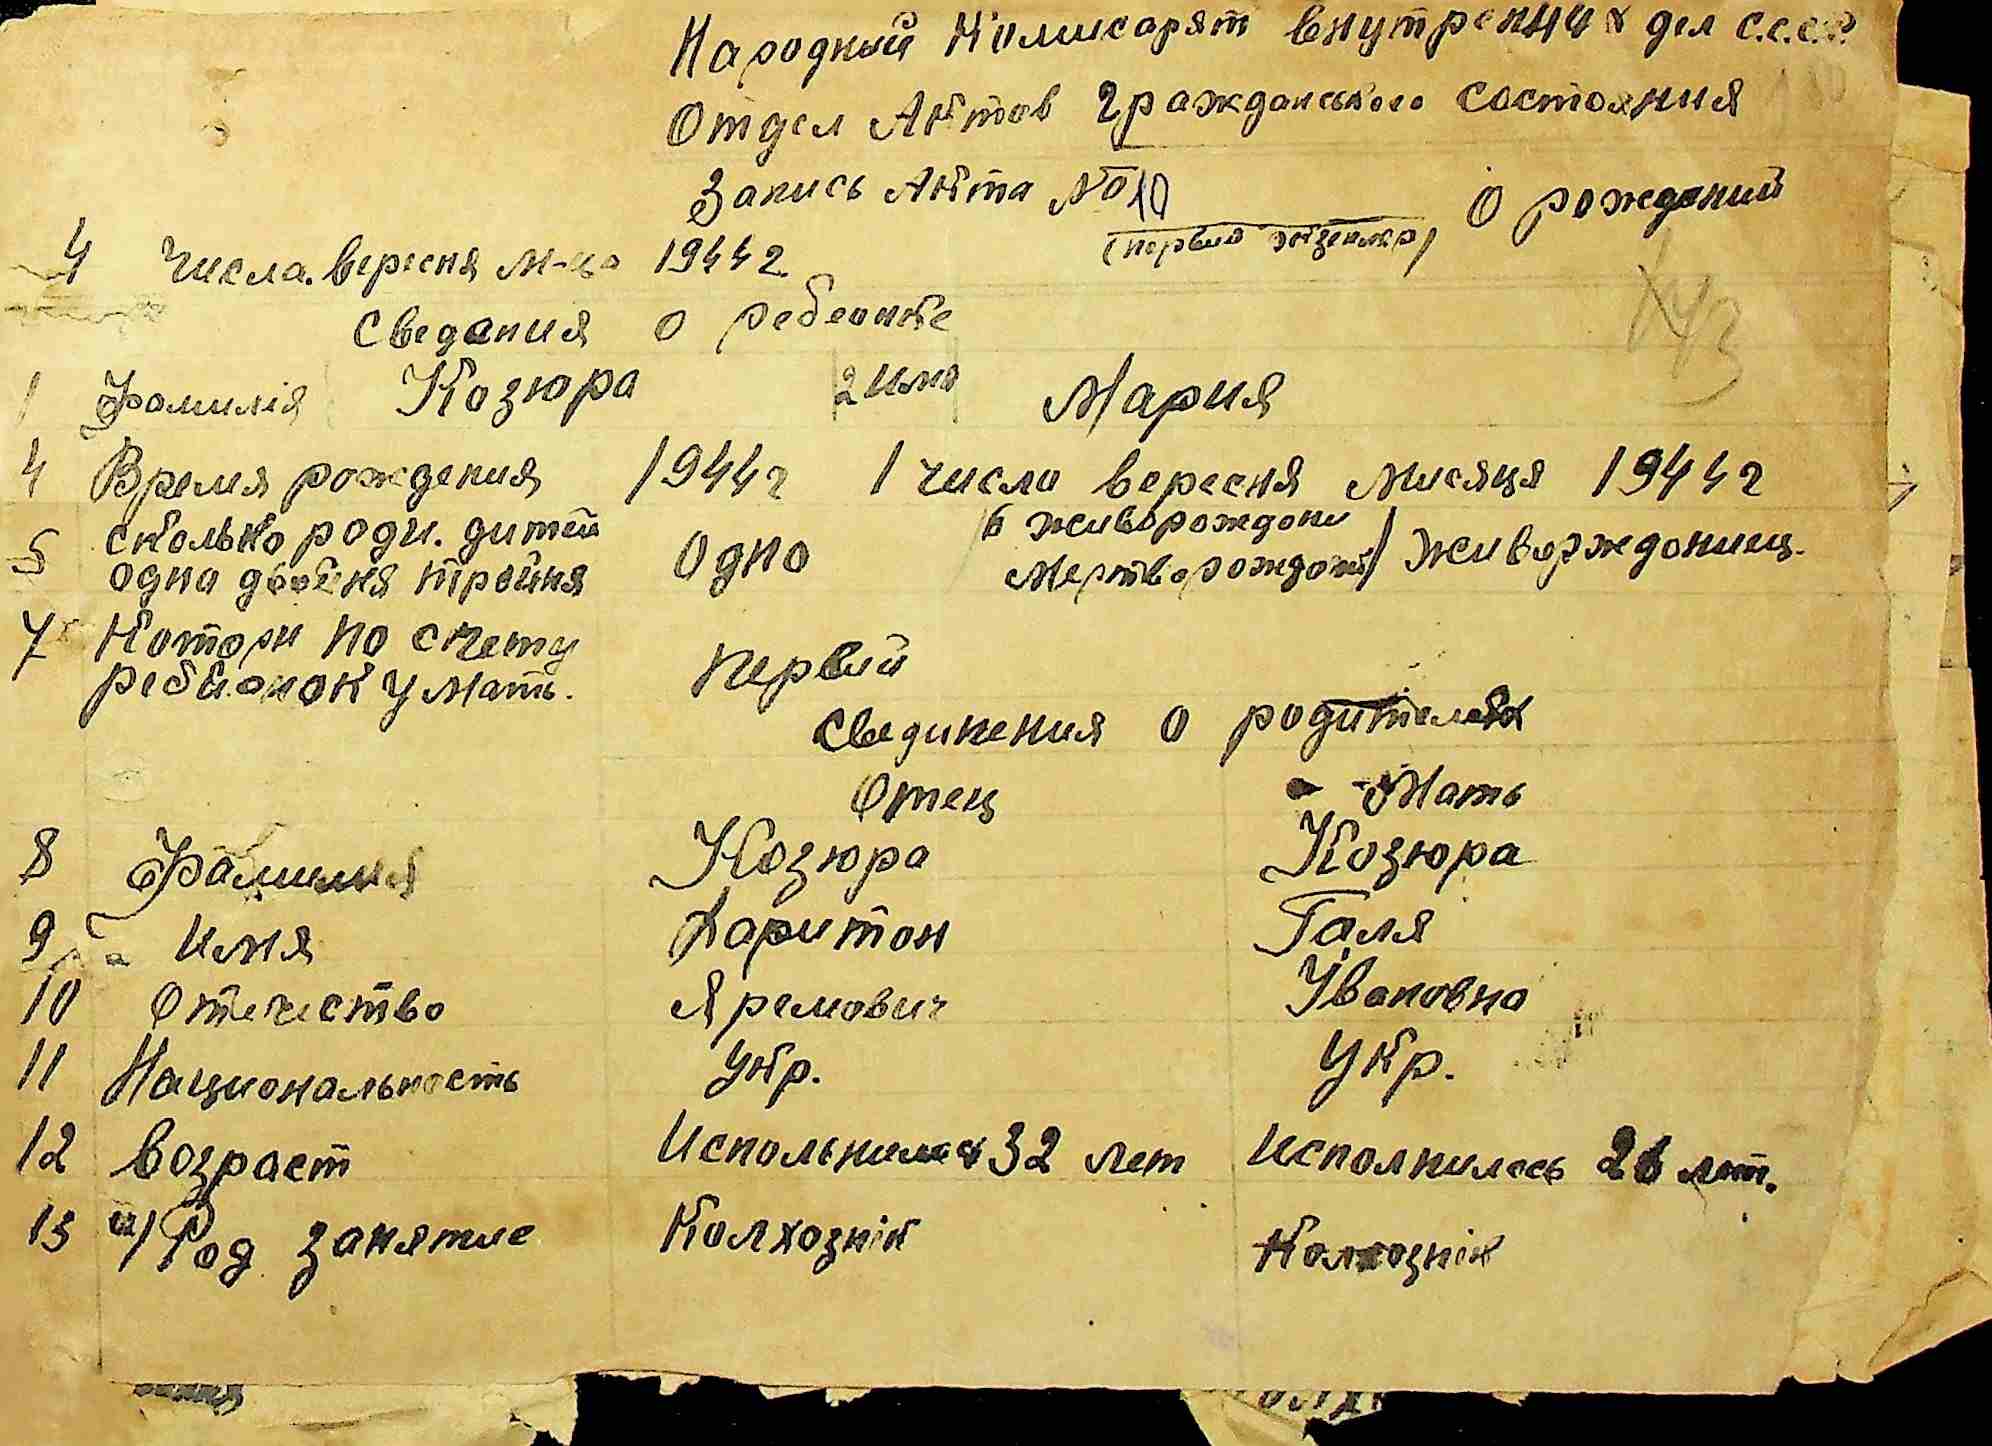 Народный Комисарят внутренних дел С.С.С.Р.
Отдел Актов гражданського состояния
Запись Акта № 10 о рождений
(первый экземпляр)
4 числа. вересня м-ца 1944 г.
Сведания о ребеонке
1 Фамилія Козюра 2 Имя Мария
4 Время рождения 1944 г 1 число вересня мисяця 1944 г
5 сколько роди. дитей одна двойня тройня Одно 6 живорождони мертворождоний живорждониец.
7 Котори по счету
ребйонок у мать. первый
Сведипения о родителях
Отец Мать
8 Фамилия Козюра Козюра
9 Имя Харитон Галя
10 Отечество Яремович Ивановна
11 Национальность Укр. Укр.
12 Возраст Испольнилось 32 лет Исполнилось 26 лет.
13 а/ Род занятие Колхознік Колхознік